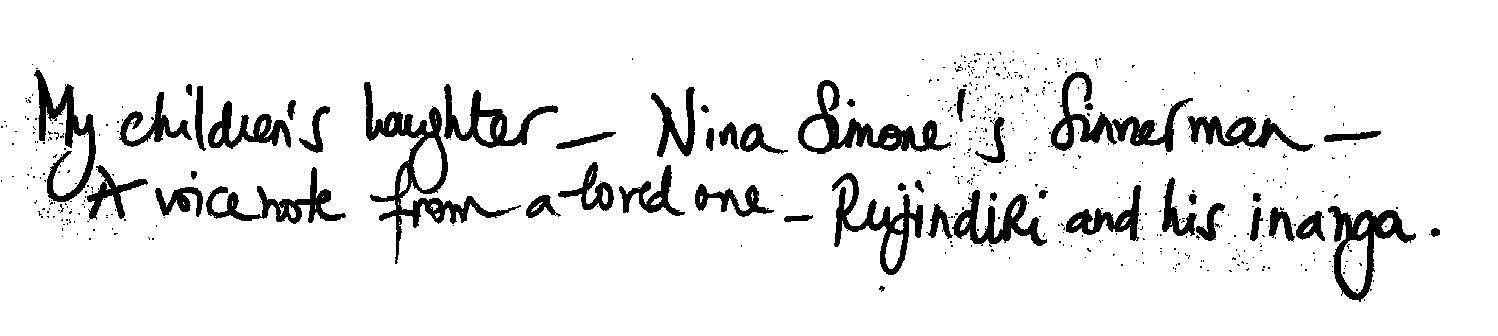 My children's laughter – Nina Simone's Sinnerman –
A voice note from a loved one – Rujindiri and his inanga.